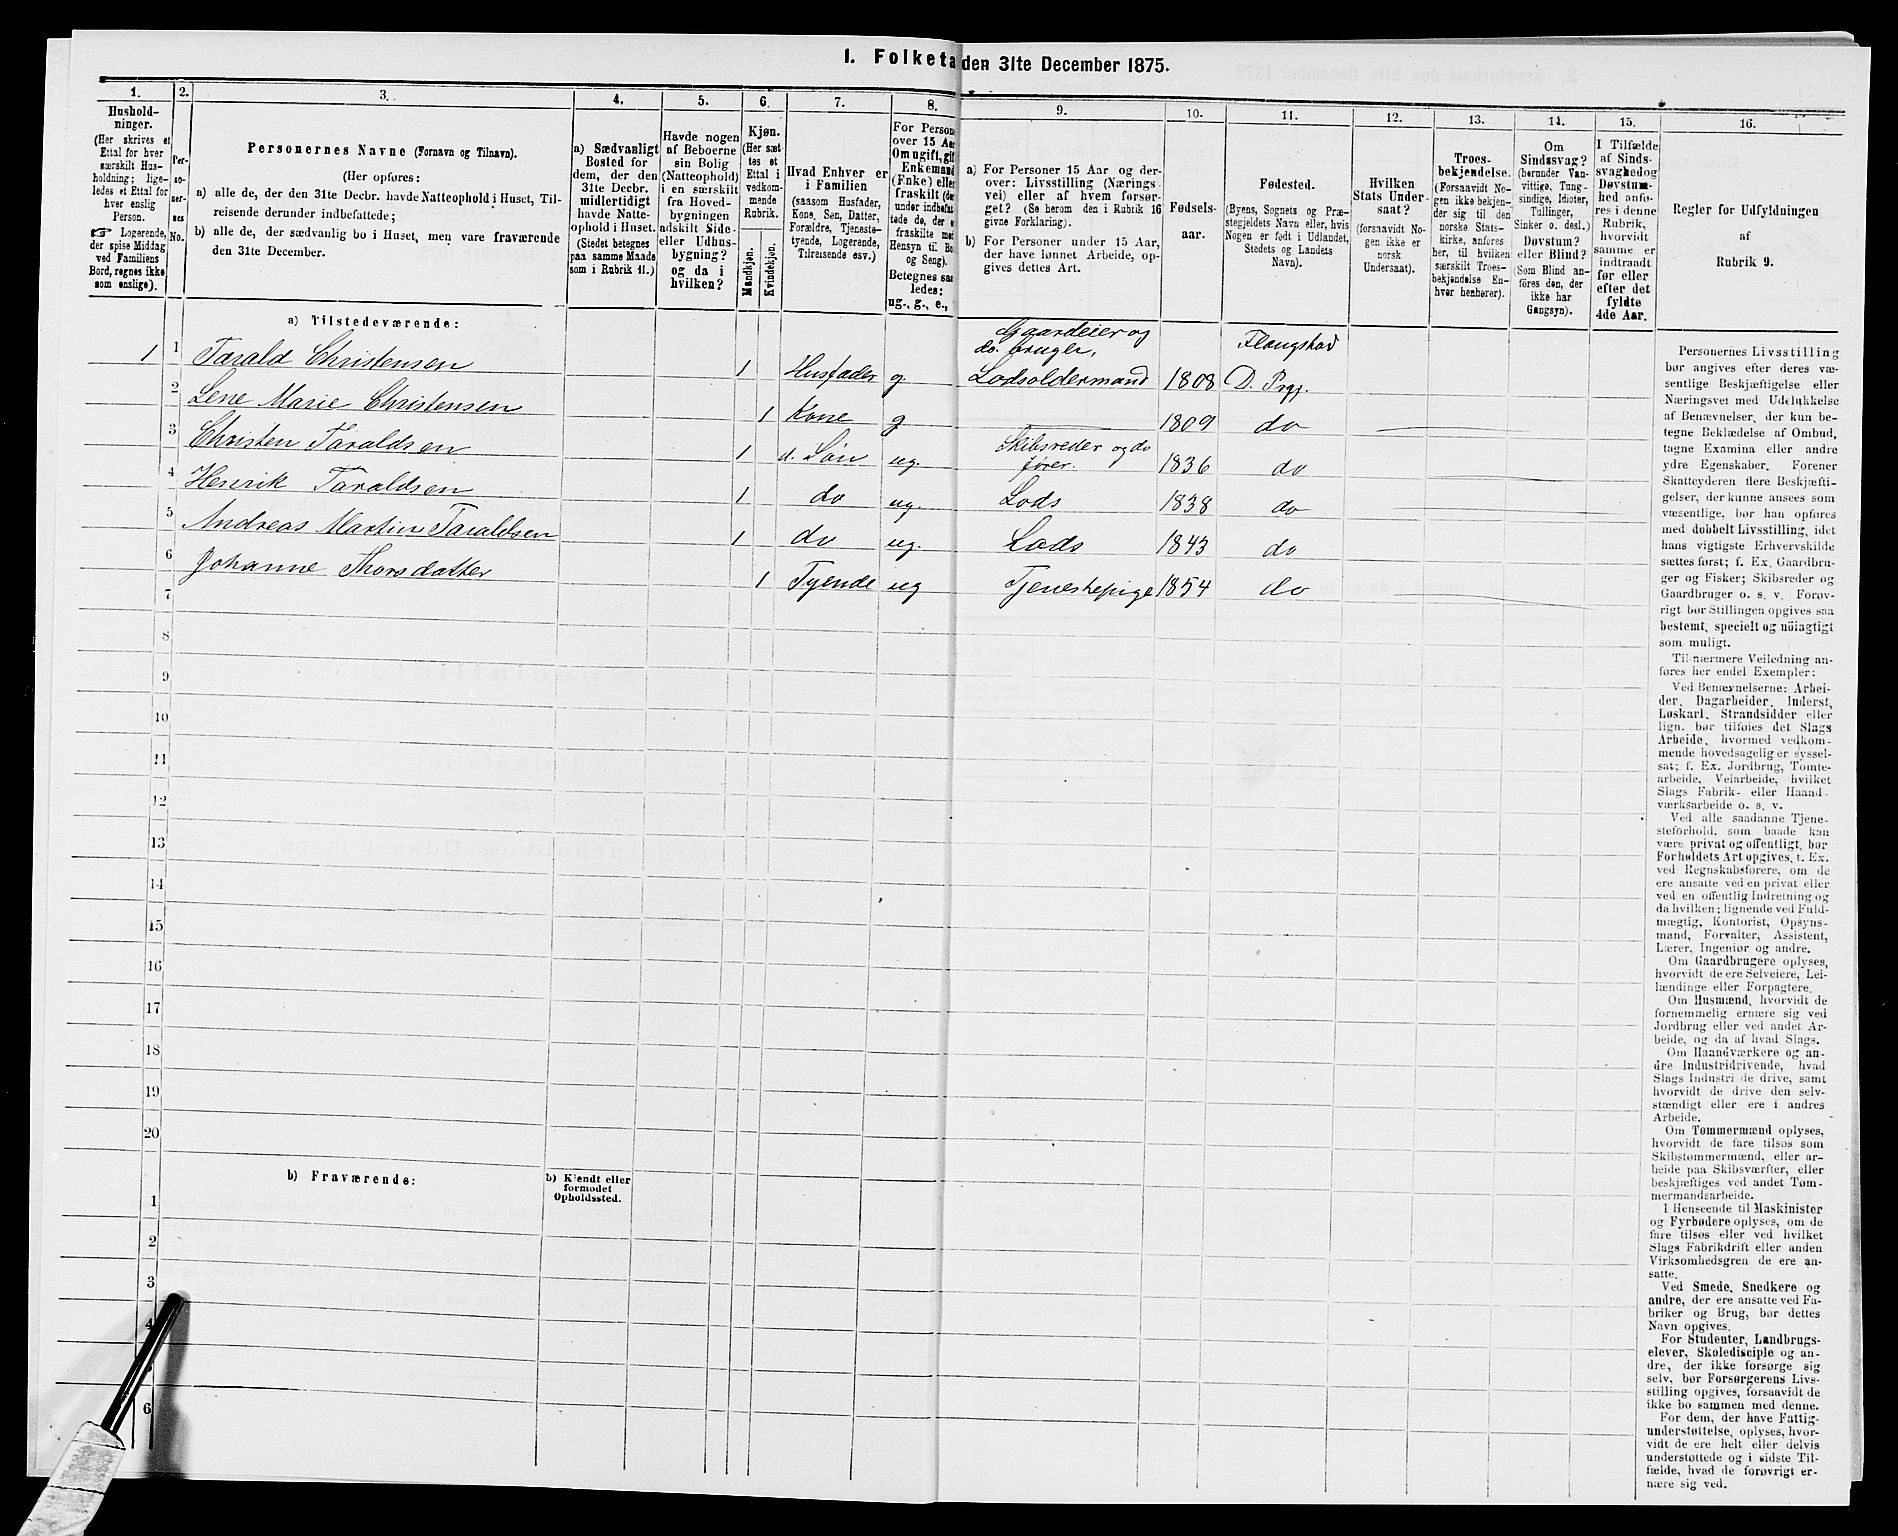 I. Folketa
den 31te December 1875.
1.
2.
3.
4.
5.
6.
7.
8.
9.
10.
11.
12.
13.
14.
15.
16.
Hushold-
ninger.
(Her skrives et
Ettal for hver
særskilt Hus-
holdning; lige-
ledes et Ettal for
hver enslig
Person.
☞ Logerende,
der spise Middag
ved Familiens
Bord, regnes ikke
som enslige).
Per-
so-
ner-
nes
No.
Personernes Navne (Fornavn og Tilnavn).
(Her opføres:
a) alle de, der den 31te Decbr. havde Natteophold i Huset, Til-
reisende derunder indbefattede;
b) alle de, der sædvanlig bo i Huset, men vare fraværende
den 31te December.
a) Sædvanligt
Bosted for
dem, der den
31te Decbr.
midlertidigt
havde Natte-
ophold i Huset.
(Stedet betegnes
paa samme Maade
som i Rubrik 11.)
Havde nogen
af Beboerne
sin Bolig
(Natteophold)
i en særskilt
fra Hoved-
bygningen
adskilt Side-
eller Udhus-
bygning?
og da i
hvilken?
Kjøn.
(Her sæt-
tes et
Ettal i
vedkom-
mende
Rubrik.
Mandkjøn.
Kvindekjøn.
Hvad Enhver er
i Familien
(saasom Husfader,
Kone, Søn, Datter,
Forældre, Tjeneste-
tyende, Logerende,
Tilreisende osv.)
For Persone
over 15 Aar
Om ugift, gift
Enkemand
(Enke) eller
fraskilt (der
under indbefat-
tede de, der e
fraskilte med
Hensyn til Bo
og Seng).
Betegnes saa
ledes:
ug., g., e.,
a) For Personer 15 Aar og der-
over: Livsstilling (Nærings-
vei) eller af hvem forsør-
get? (Se herom den i Rubrik 16
givne Forklaring).
b) For Personer under 15 Aar,
der have lønnet Arbeide, op-
gives dettes Art.
Fødsels-
aar.
Fødested.
(Byens, Sognets og Præ-
stegjeldets Navn eller, hvis
Nogen er født i Udlandet,
Stedets og Landets
Navn).
Hvilken
Stats Under-
saat?
(forsaavidt No-
gen ikke er
norsk
Undersaat).
Troes-
bekjendelse.
(Forsaavidt No-
gen ikke bekjen-
der sig til den
norske Stats-
kirke, anføres
her, til hvilken
særskilt Troes-
bekjendelse En-
hver henhører).
Om
Sindssvag?
(herunder Van-
vittige, Tung-
sindige, Idioter,
Tullinger,
Sinker o. desl.)
Døvstum?
eller Blind?
(Som Blind an-
føres den, der
ikke har
Gangsyn).
I Tilfælde
af Sinds-
svaghed og
Døvstum-
hed anfø-
res i denne
Rubrik,
hvorvidt
samme er
indtraadt
før eller
efter det
fyldte
4de Aar.
Regler for Udfyldningen
af
Rubrik 9.
a) Tilstedeværende:
Gaardeier og
do. bruger,
1 1 Tarald Christensen 1 Husfader g Lodsoldermand 1808 D. Prgj.
2 Lene Marie Christensen 1 Kone g 1809 do
3 Christen Taraldsen 1 d. Søn ug. Skibsreder og do
fører. 1836 do
4 Henrik Taraldsen 1 do ug. Lods 1838 do
5 Andreas Martin Taraldsen 1 do ug. Lods 1843 do
6 Johanne Thorsdatter 1 Tyende ug Tjenestepige 1854 do
7
8
9
10
11
12
13
14
15
16
17
18
19
20
b) Fraværende:
b) Kjendt eller
formodet
Opholdssted.
1
2
3
4
6
Personernes Livsstilling
bør angives efter deres væ-
sentlige Beskjæftigelse eller
Næringsvei med Udelukkelse
af Benævnelser, der kun be-
tegne Beklædelse af Ombud,
tagne Examina eller andre
ydre Egenskaber. Forener
Skatteyderen flere Beskjæfti-
gelser, der kunne ansees som
væsentlige, bør han opføres
med dobbelt Livsstilling, idet
hans vigtigste Erhvervskilde
sættes først; f. Ex. Gaardbru-
ger og Fisker; Skibsreder og
Gaardbruger o. s. v. Forøv-
rigt bør Stillingen opgives saa
bestemt, specielt og nöiagtigt
som muligt.
Til nærmere Veiledning an-
føres her endel Exempler:
Ved Benævnelserne: Arbei-
der, Dagarbeider, Inderst,
Løskarl, Strandsidder eller
lign. bør tilføies det Slags
Arbeide, hvormed vedkom-
mende hovedsagelig er syssel-
sat; f. Ex. Jordbrug, Tomte-
arbeide, Veiarbeide, hvilket
Slags Fabrik- eller Haand-
værksarbeide o. s. v.
Ved alle saadanne Tjene-
steforhold, som baade kan
være privat og offentligt, bør
Forholdets Art opgives, t. Ex.
ved Regnskabsførere, om de
ere ansatte ved en privat eller
ved en offentlig Indretning og
da hvilken; lignende ved Fuld-
mægtig, Kontorist, Opsyns-
mand, Forvalter, Assistent,
Lærer, Ingeniør og andre.
Om Gaardbrugere oplyses,
hvorvidt de ere Selveiere, Lei-
lændinge eller Forpagtere.
Om Husmænd, hvorvidt de
fornemmelig ernære sig ved
Jordbrug eller ved andet Ar-
beide, og da af hvad Slags.
Om Haandværkere og an-
dre Industridrivende, hvad
Slags Industri de drive, samt
hvorvidt de drive den selv-
stændigt eller ere i andres
Arbeide.
Om Tømmermænd oplyses,
hvorvidt de fare tilsøs som
Skibstømmermænd, eller ar-
beide paa Skibsværfter, eller
beskjæftiges ved andet Tøm-
mermandsarbeide.
I Henseende til Maskinister
og Fyrbødere oplyses, om de
fare tilsøs eller ved hvilket
Slags Fabrikdrift eller anden
Virksomhedsgren de ere an-
satte.
Ved Smede, Snedkere og
andre, der ere ansatte ved Fa-
briker og Brug, bør dettes
Navn opgives.
For Studenter, Landbrugs-
elever, Skoledisciple og an-
dre, der ikke forsørge sig
selv, bør Forsørgerens Livs-
stilling opgives, forsaavidt de
ikke bo sammen med denne.
For dem, der have Fattig-
understøttelse, oplyses, hvor-
vidt de ere helt eller delvis
understøttede og i sidste Til-
fælde, hvad de forøvrigt er-
nære sig ved.